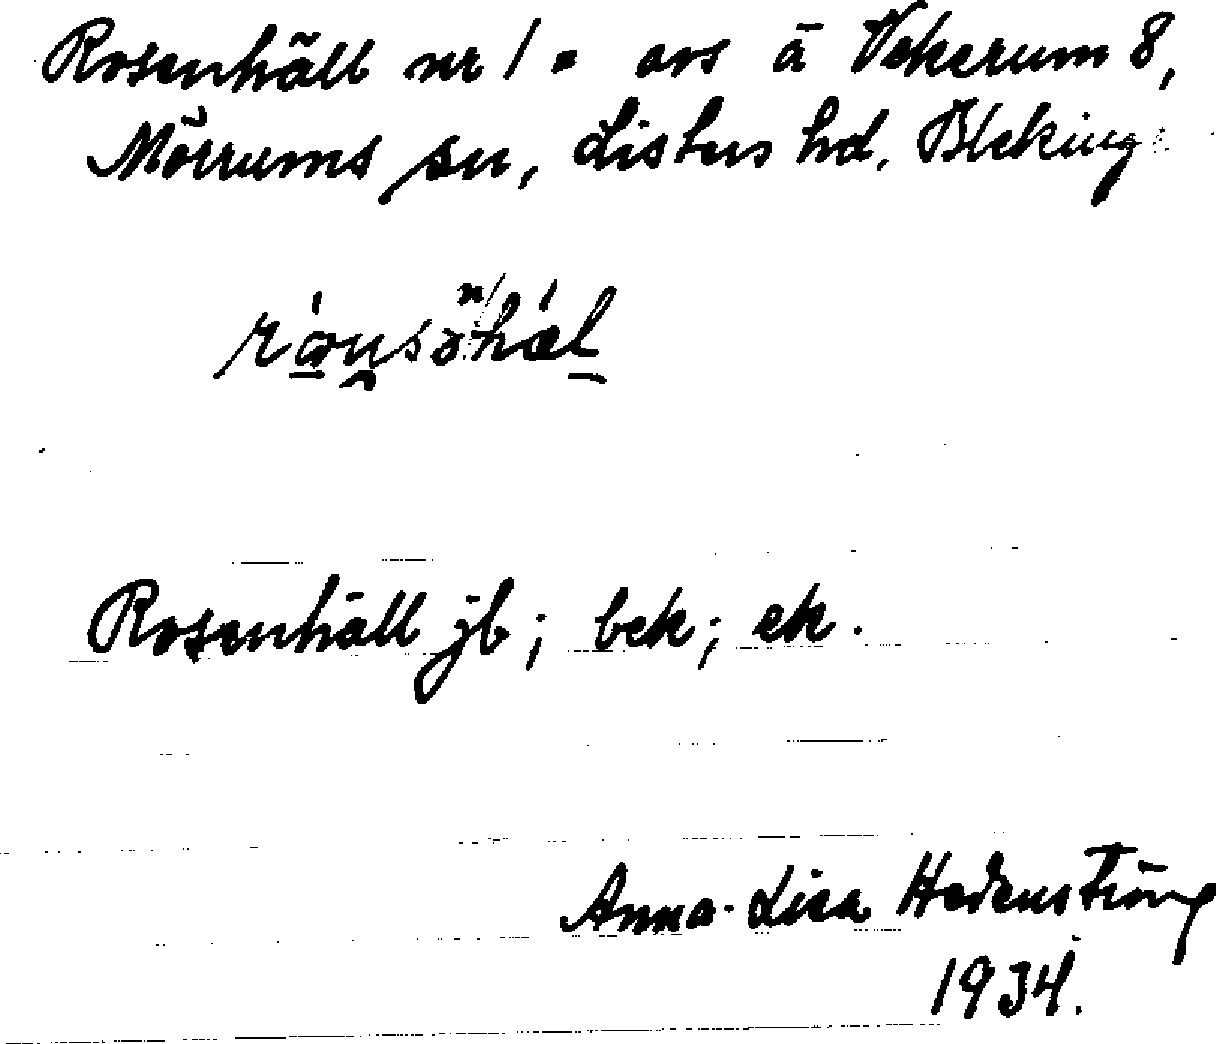 Rosenhäll nr 1 = avs å Vekerum 8,
Mörrums sn, Listers hd. Bleking
Rosenhäll jb; bek; ek.
Anna-Lisa Hedenström
1934.